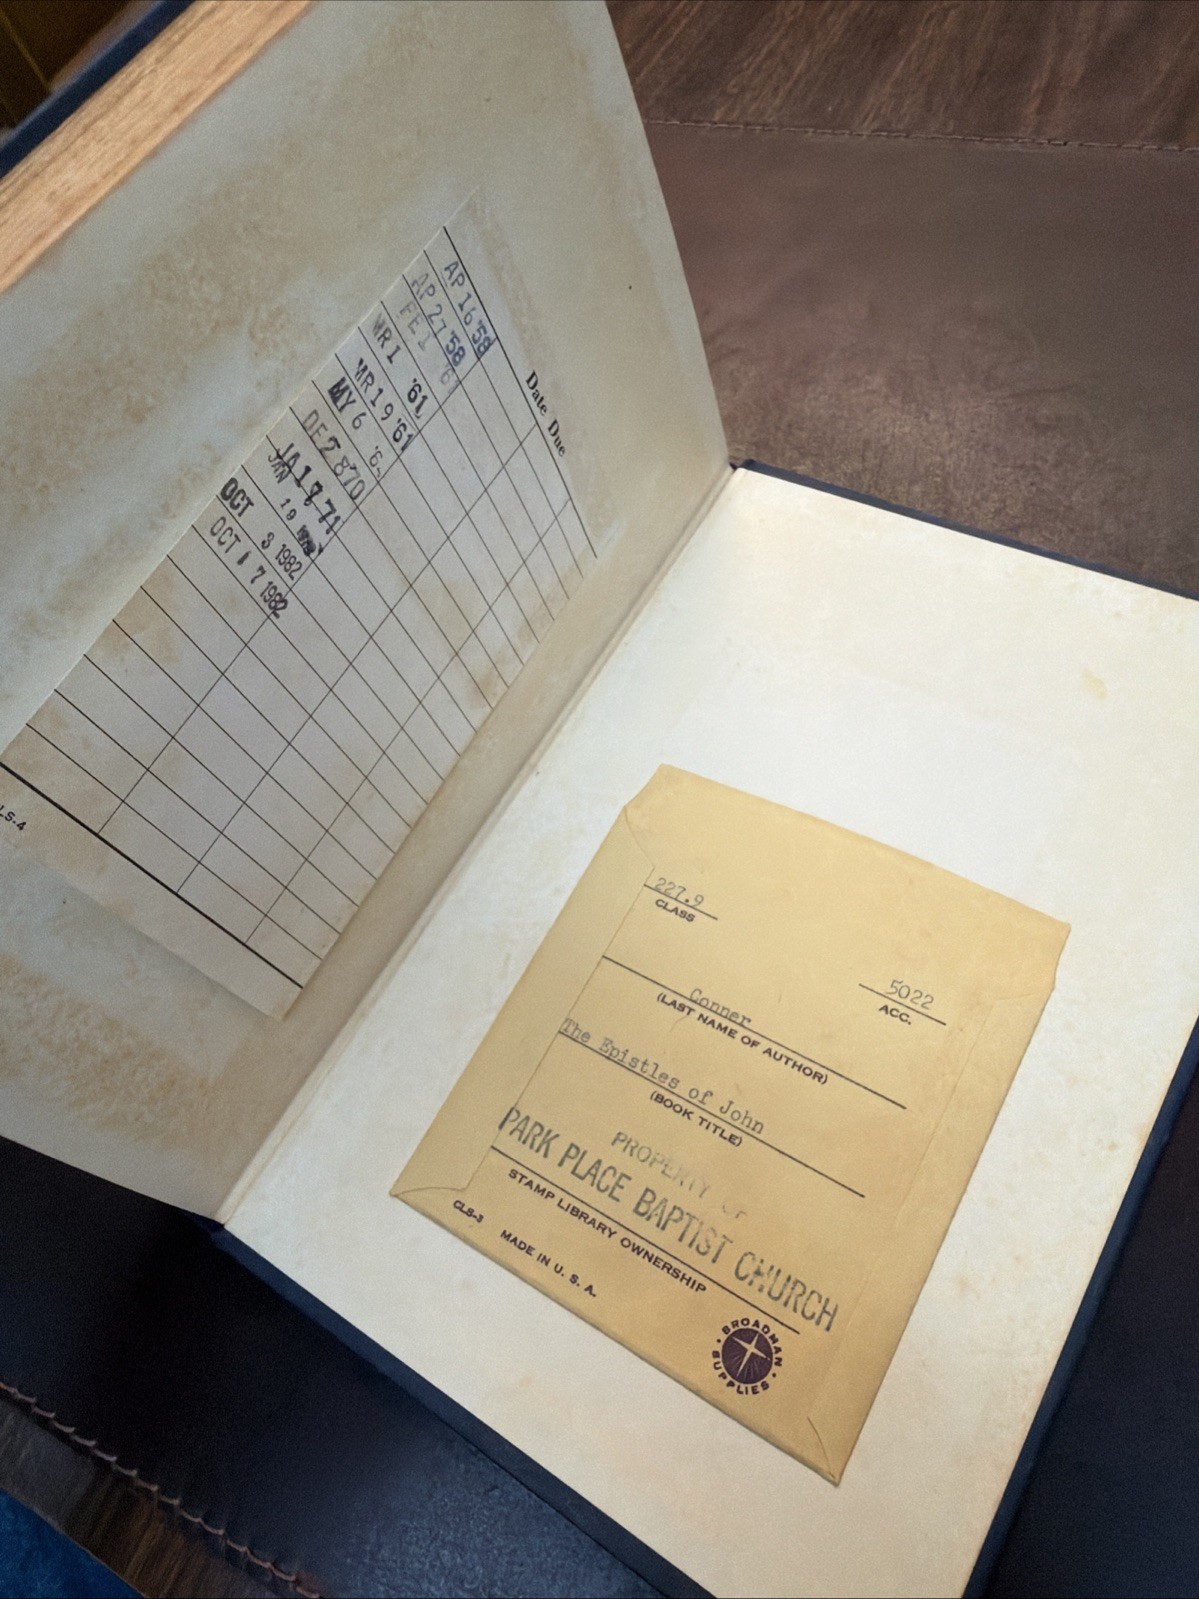 Date Due
AP 16 '58
AP 27 '58
FE 1 '61
MR 1 '61
MR 19 '61
MY 6
DE 28 70
JA 18 71
JAN 19
OCT 3 1982
OCT 17 1982
LS-4
227.9
CLASS
5022
ACC.
Conner
(LAST NAME OF AUTHOR)
The Epistles of John
(BOOK TITLE)
PROPERTY OF
PARK PLACE BAPTIST CHURCH
STAMP LIBRARY OWNERSHIP
CLS-3
MADE IN U. S. A.
BROADMAN
SUPPLIES